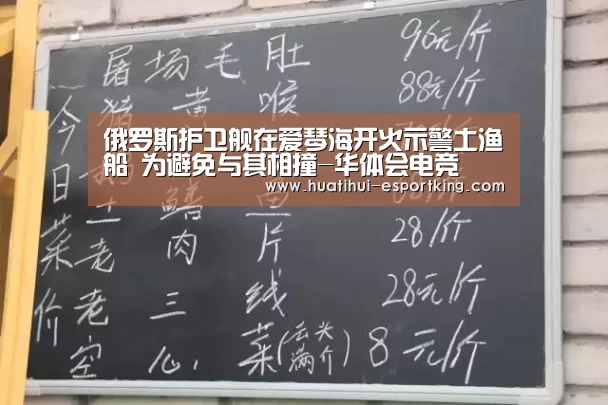 屠场毛肚 96元/斤
今 猪黄喉 88元/斤
俄罗斯护卫舰在爱琴海开火示警土渔
船 为避免与其相撞—华体会电竞
www.huatihui-esportking.com
日 土鳝鱼
菜 老肉片 28/斤
价 老三线 28元/斤
空心菜(去头满介) 8元/斤